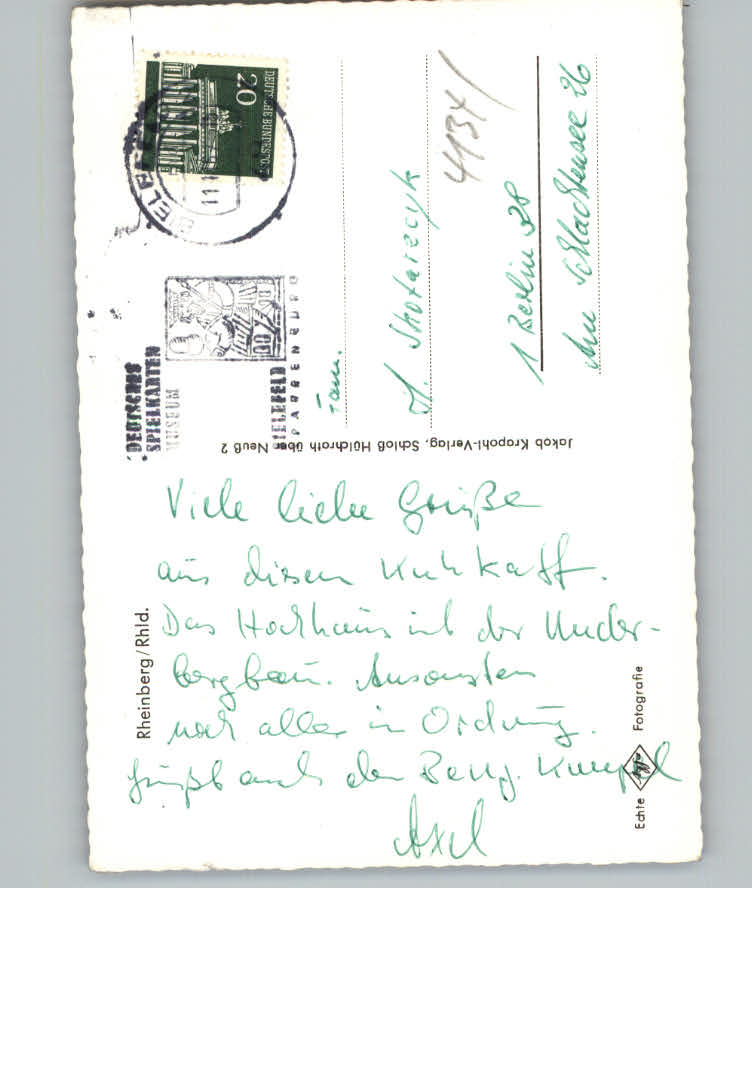 DEUTSCHE BUNDESPOST
20
BIELEFELD
11
DEUTSCHES
SPIELKARTEN
MUSEUM
BIELEFELD
SPARRENBURG
Fam.
H. Skotarzcyk
4134/
1 Berlin 38
Am Schlachtensee 26
Jakob Krapohl-Verlag, Schloß Hülchrath über Neuß 2
Rheinberg/Rhld.
Viele liebe Grüße
aus diesem Kuhkaff.
Das Hochhaus ist der Under-
bergbau. Ansonsten
noch alles in Ordnung.
Grüßt auch den
Axel
Echte Agfa Fotografie